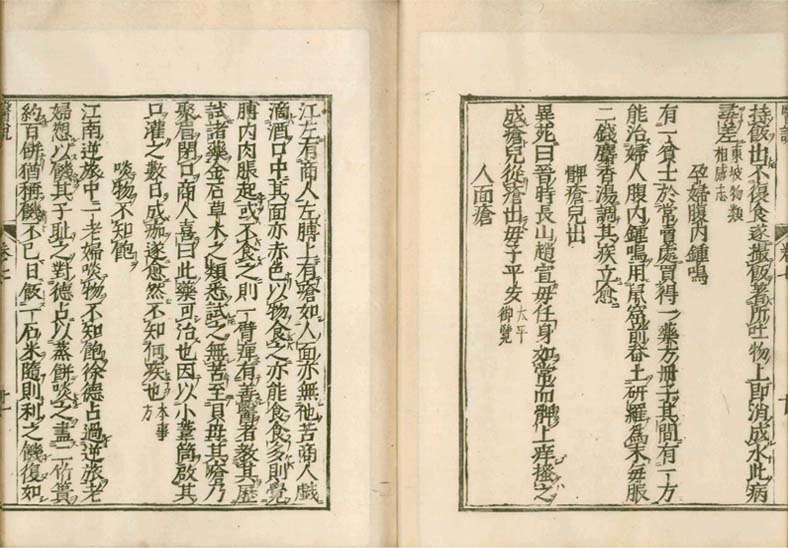 醫說 卷七
持飯出不復食遂撮飯著所吐物上即消成水此病
尋差 東坡物類相感志
孕婦腹內鍾鳴
有一貧士於常賣處買得一藥方冊子其間有一方
能治婦人腹內鍾鳴用鼠窟前畚土研羅爲末每服
二錢麝香湯調其疾立愈
髀瘡兒出
異苑曰晉時長山趙宣母任身如常而髀上痒搔之
成瘡兒從瘡出母子平安 太平御覽
人面瘡
江左有商人左膊上有瘡如人面亦無他苦商人戲
滴酒口中其面亦赤色以物食之亦能食食多則覺
膊內肉脹起或不食之則一臂痺有善醫者教其歷
試諸藥金石草木之類悉試之無苦至貝母其瘡乃
聚眉閉口商人喜曰此藥可治也因以小葦筒啟其
口灌之數日成痂遂愈然不知何疾也 本事方
啖物不知飽
江南逆旅中一老婦啖物不知飽徐德占過逆旅老
婦愬以饑其子恥之對德占以蒸餅啖之盡一竹簣
約百餅猶稱饑不已日飯一石米隨則利之饑復如
醫說 卷七 廿一